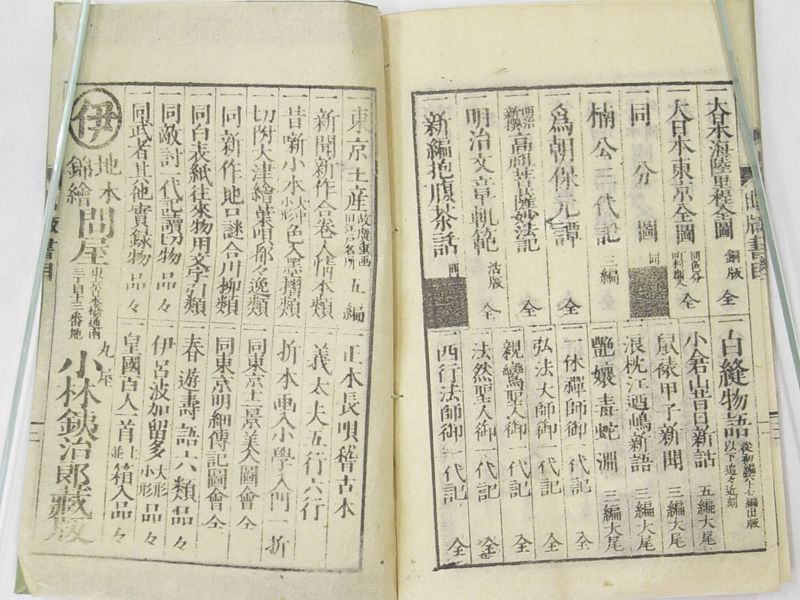 一大日本海陸里程全圖 銅版 全
一大日本東京全圖 同色分 同村劃入 全
一同分圖 同
一楠公三代記 三編 全
一為朝保元譚 全
一明治新撰 高祖菩薩妙法記 全
一明治文章軌範 活版 全
一新編抱腹茶話 同
一白縫物語 從初編六十七編出版 以下追々近刻
一小倉山昔日新話 五編大尾
一鼠裱甲子新聞 三編大尾
一浪枕江廼嶋新語 三編大尾
一艶孃毒蛇淵 三編大尾
一一休禪師御一代記 全
一弘法大師御一代記 全
一親鸞聖人御一代記 全
一法然聖人御一代記 全
一西行法師御一代記 全
一東京土産 故廣重画 旧江戸名所 五編
一新聞新作合巻人情本類
一昔噺小本 大中小形 色入墨摺類
一切附大津繪葉唄都々逸類
一同新作地口謎合川柳類
一同白表紙往来物用文字引類
一同敵討一代記讀切物品々
一同武者其他實録物品々
一正本長唄稽古本
一義太夫五行六行
一折本画入小学入門一折
一同東京土京美人圖會 全
一同東京明細傳記圖會 全
一春遊壽語六類品々
一伊呂波加留多 大形 小形 品々
一皇國百人一首 上並 箱入品々
伊
地本
錦繪
問屋
東京日本橋通
三丁目十三番地
丸屋
小林鉄治郎藏版